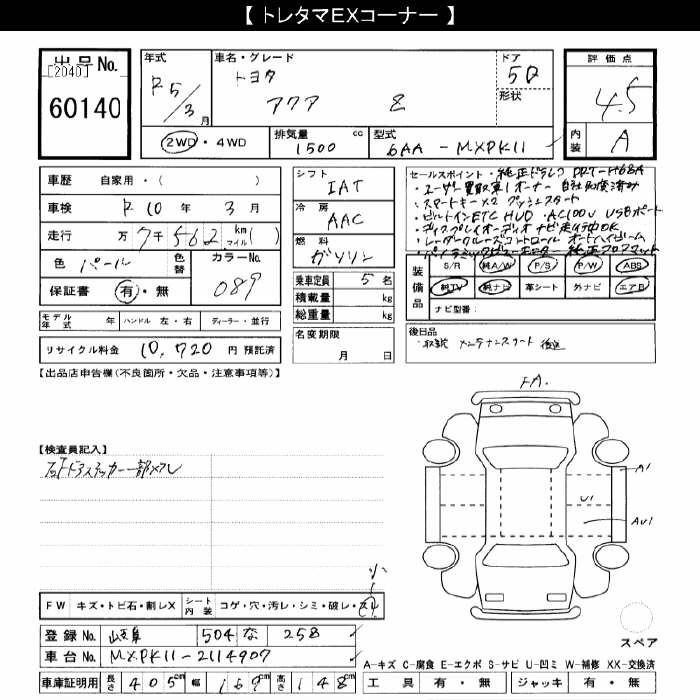 【 トレタマEXコーナー 】
出品No.
[2040]
60140
年式
R5/3月
車名・グレード
トヨタ
アクア Z
ドア
5D
形状
評価点
4.5
内装
A
2WD・4WD
排気量 cc
1500
型式
6AA - MXPK11
車歴 自家用・( )
車検 R10年3月
走行 万7千562 km マイル( )
色 パール
色替
カラーNo.
089
保証書 有・無
モデル年式 年 ハンドル 左・右 ディーラー・並行
リサイクル料金 10,720 円 預託済
シフト
IAT
冷房
AAC
燃料
ガソリン
乗車定員 5 名
積載量 kg
総重量 kg
名変期限
月 日
セールスポイント・純正ドラレコ DRT-H68A
・ユーザー買取車1オーナー
・スマートキー×2 プッシュスタート
・ビルトインETC HUD ・AC100V USBポート
・ディスプレイオーディオ ナビ走行中OK
・レーダークルーズコントロール オートハイビーム
・パノラミックビューモニター 純正フロアマット
装備品
S/R 純A/W P/S P/W ABS
純TV 純ナビ 革シート 外ナビ エアB
ナビ型番:
後日品
・取説 メンテナンスノート 後送
【出品店申告欄(不良箇所・欠品・注意事項等)】
【検査員記入】
右Fドアステッカー一部メクレ
FA.
A1
U1
AU1
小
FW キズ・トビ石・割レX
シート内装 コゲ・穴・汚レ・シミ・破レ・スレ
登録No. 岐阜 504 な 258
車台No. MXPK11-2114907
車庫証明用 長さ 405cm 幅 169cm 高さ 148cm
スペア
A-キズ C-腐食 E-エクボ S-サビ U-凹ミ W-補修 XX-交換済
工具 有・無 ジャッキ 有・無